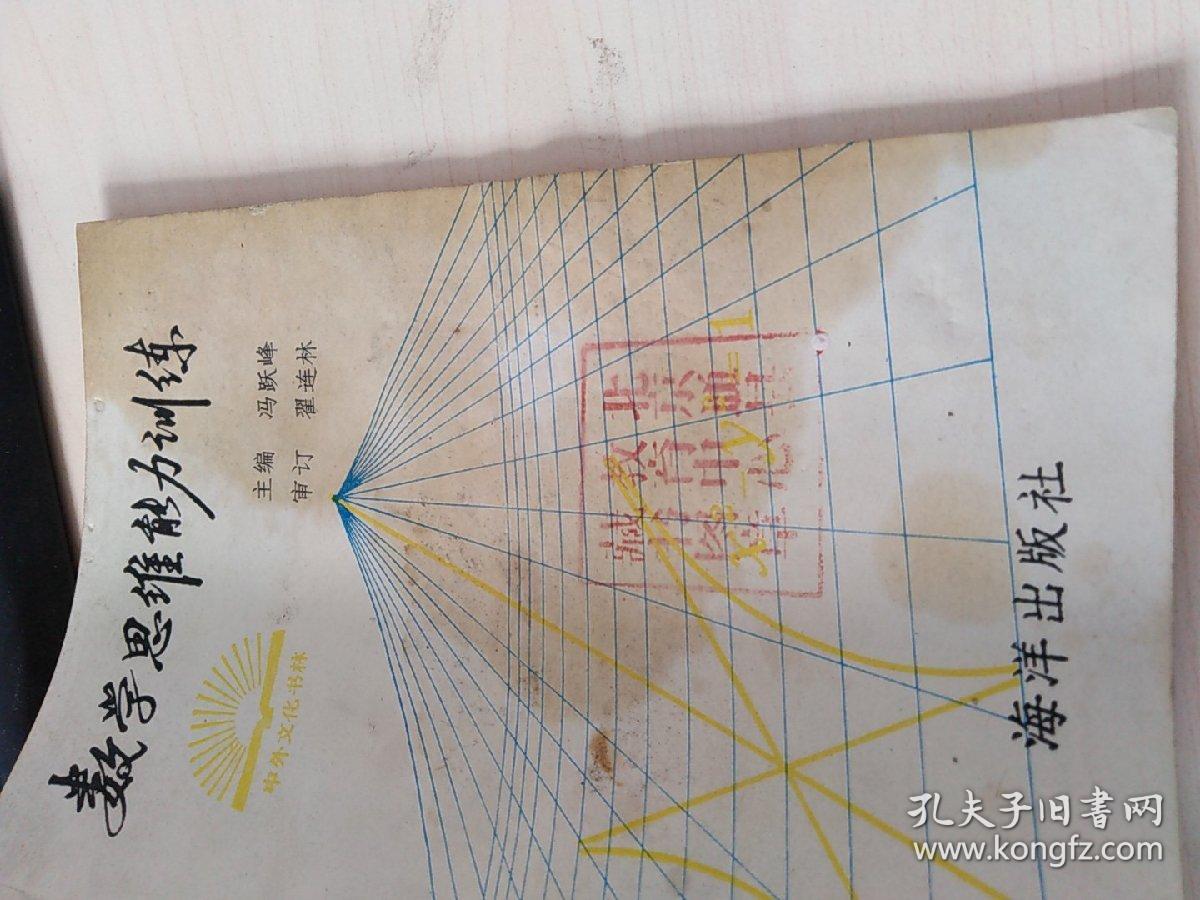 数学思维能力训练
主编 冯跃峰
审订 翟连林
中外文化书林
海洋出版社
孔夫子旧书网
www.kongfz.com